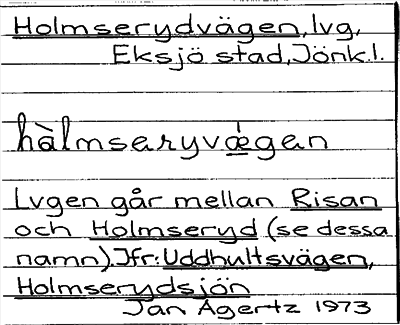 Holmserydvägen, lvg,
Eksjö stad, Jönk.l.
hàlmseryvǽgen
Lvgen går mellan Risan
och Holmseryd (se dessa
namn). Jfr: Uddhultsvägen,
Holmserydsjön
Jan Agertz 1973